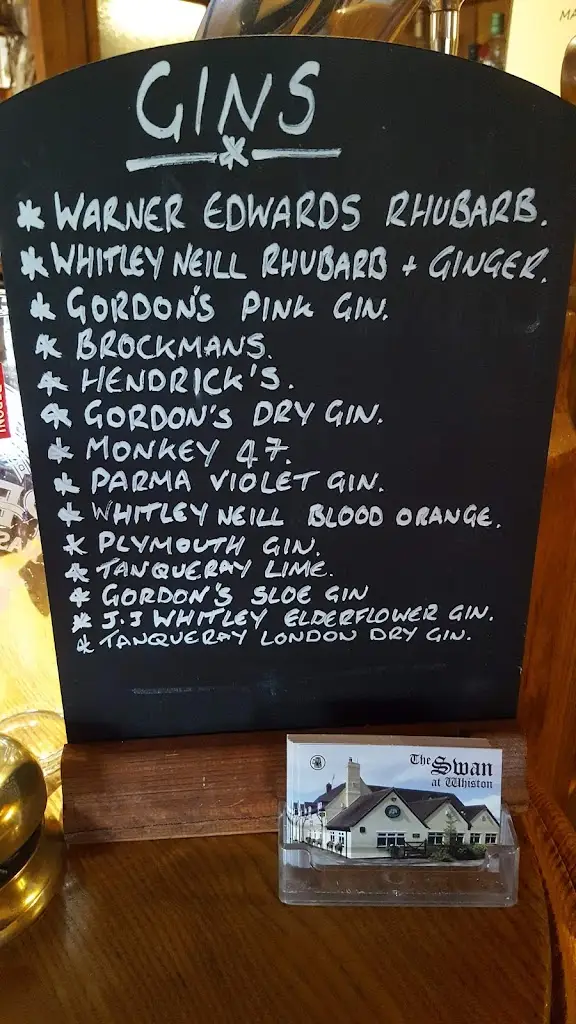 GINS
* WARNER EDWARDS RHUBARB.
* WHITLEY NEILL RHUBARB + GINGER.
* GORDON'S PINK GIN.
* BROCKMANS.
* HENDRICK'S.
* GORDON'S DRY GIN.
* MONKEY 47.
* PARMA VIOLET GIN.
* WHITLEY NEILL BLOOD ORANGE.
* PLYMOUTH GIN.
* TANQUERAY LIME.
* GORDON'S SLOE GIN
* J.J WHITLEY ELDERFLOWER GIN.
* TANQUERAY LONDON DRY GIN.
The Swan
at Whiston
MA